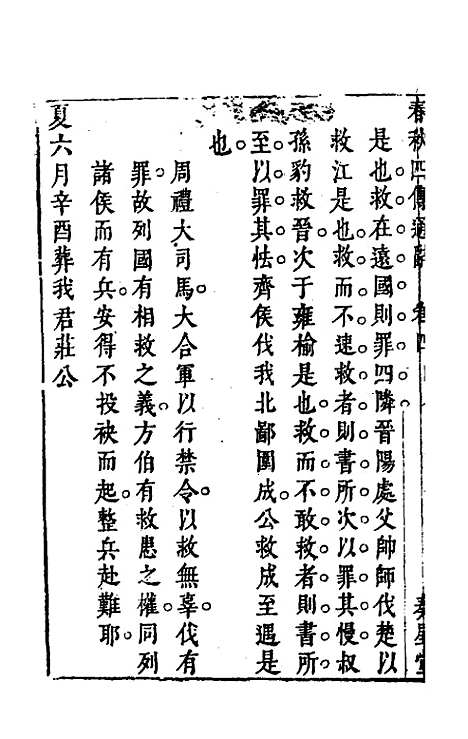 春秋四傳通辭 卷四
是也救在遠國則罪四隣晉陽處父帥師伐楚以
救江是也救而不速救者則書所次以罪其慢叔
孫豹救晉次于雍榆是也救而不敢救者則書所
至以罪其怯齊侯伐我北鄙圍成公救成至遇是
也
周禮大司馬大合軍以行禁令以救無辜伐有
罪故列國有相救之義方伯有救患之權同列
諸侯而有兵安得不投袂而起整兵赴難耶
夏六月辛酉葬我君莊公